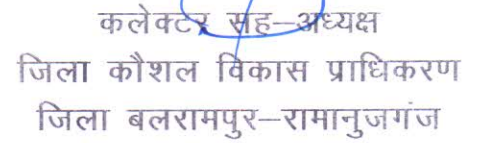 कलेक्टर सह–अध्यक्ष
जिला कौशल विकास प्राधिकरण
जिला बलरामपुर–रामानुजगंज